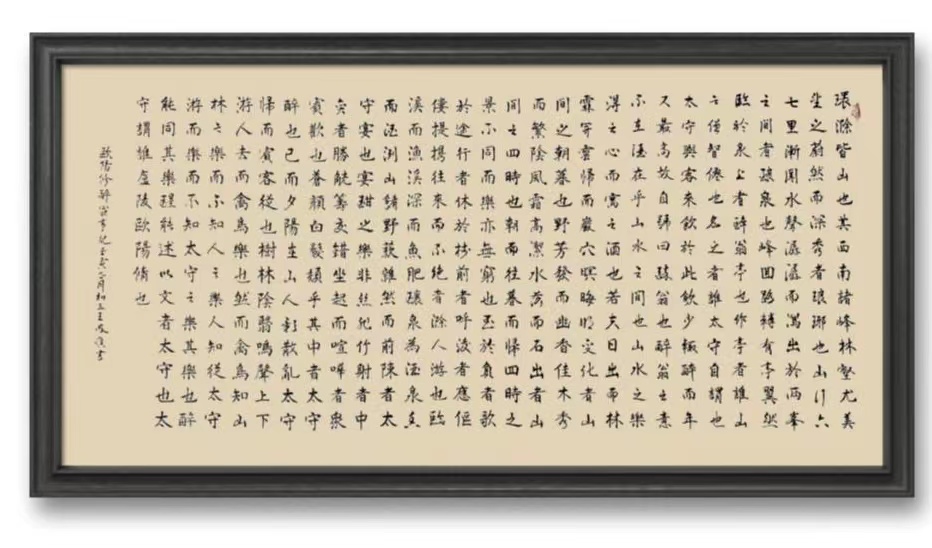 環滁皆山也其西南諸峰林壑尤美
望之蔚然而深秀者琅琊也山行六
七里漸聞水聲潺潺而瀉出於兩峯
之間者釀泉也峰回路轉有亭翼然
臨於泉上者醉翁亭也作亭者誰山
之僧智僊也名之者誰太守自謂也
太守與客來飲於此飲少輒醉而年
又最高故自號曰醉翁也醉翁之意
不在酒在乎山水之間也山水之樂
得之心而寓之酒也若夫日出而林
霏開雲歸而巖穴暝晦明變化者山
間之朝暮也野芳發而幽香佳木秀
而繁陰風霜高潔水落而石出者山
間之四時也朝而往暮而歸四時之
景不同而樂亦無窮也至於負者歌
於途行者休於樹前者呼後者應傴
僂提攜往來而不絕者滁人游也臨
溪而漁溪深而魚肥釀泉為酒泉香
而酒洌山餚野蔌雜然而前陳者太
守宴也宴酣之樂非絲非竹射者中
奕者勝觥籌交錯坐起而喧嘩者衆
賓歡也蒼顏白髮頹乎其中者太守
醉也已而夕陽在山人影散亂太守
歸而賓客從也樹林陰翳鳴聲上下
游人去而禽鳥樂也然而禽鳥知山
林之樂而不知人之樂人知從太守
游而樂而不知太守之樂其樂也醉
能同其樂醒能述以文者太守也太
守謂誰廬陵歐陽脩也
歐陽修醉翁亭記 月初三王 書